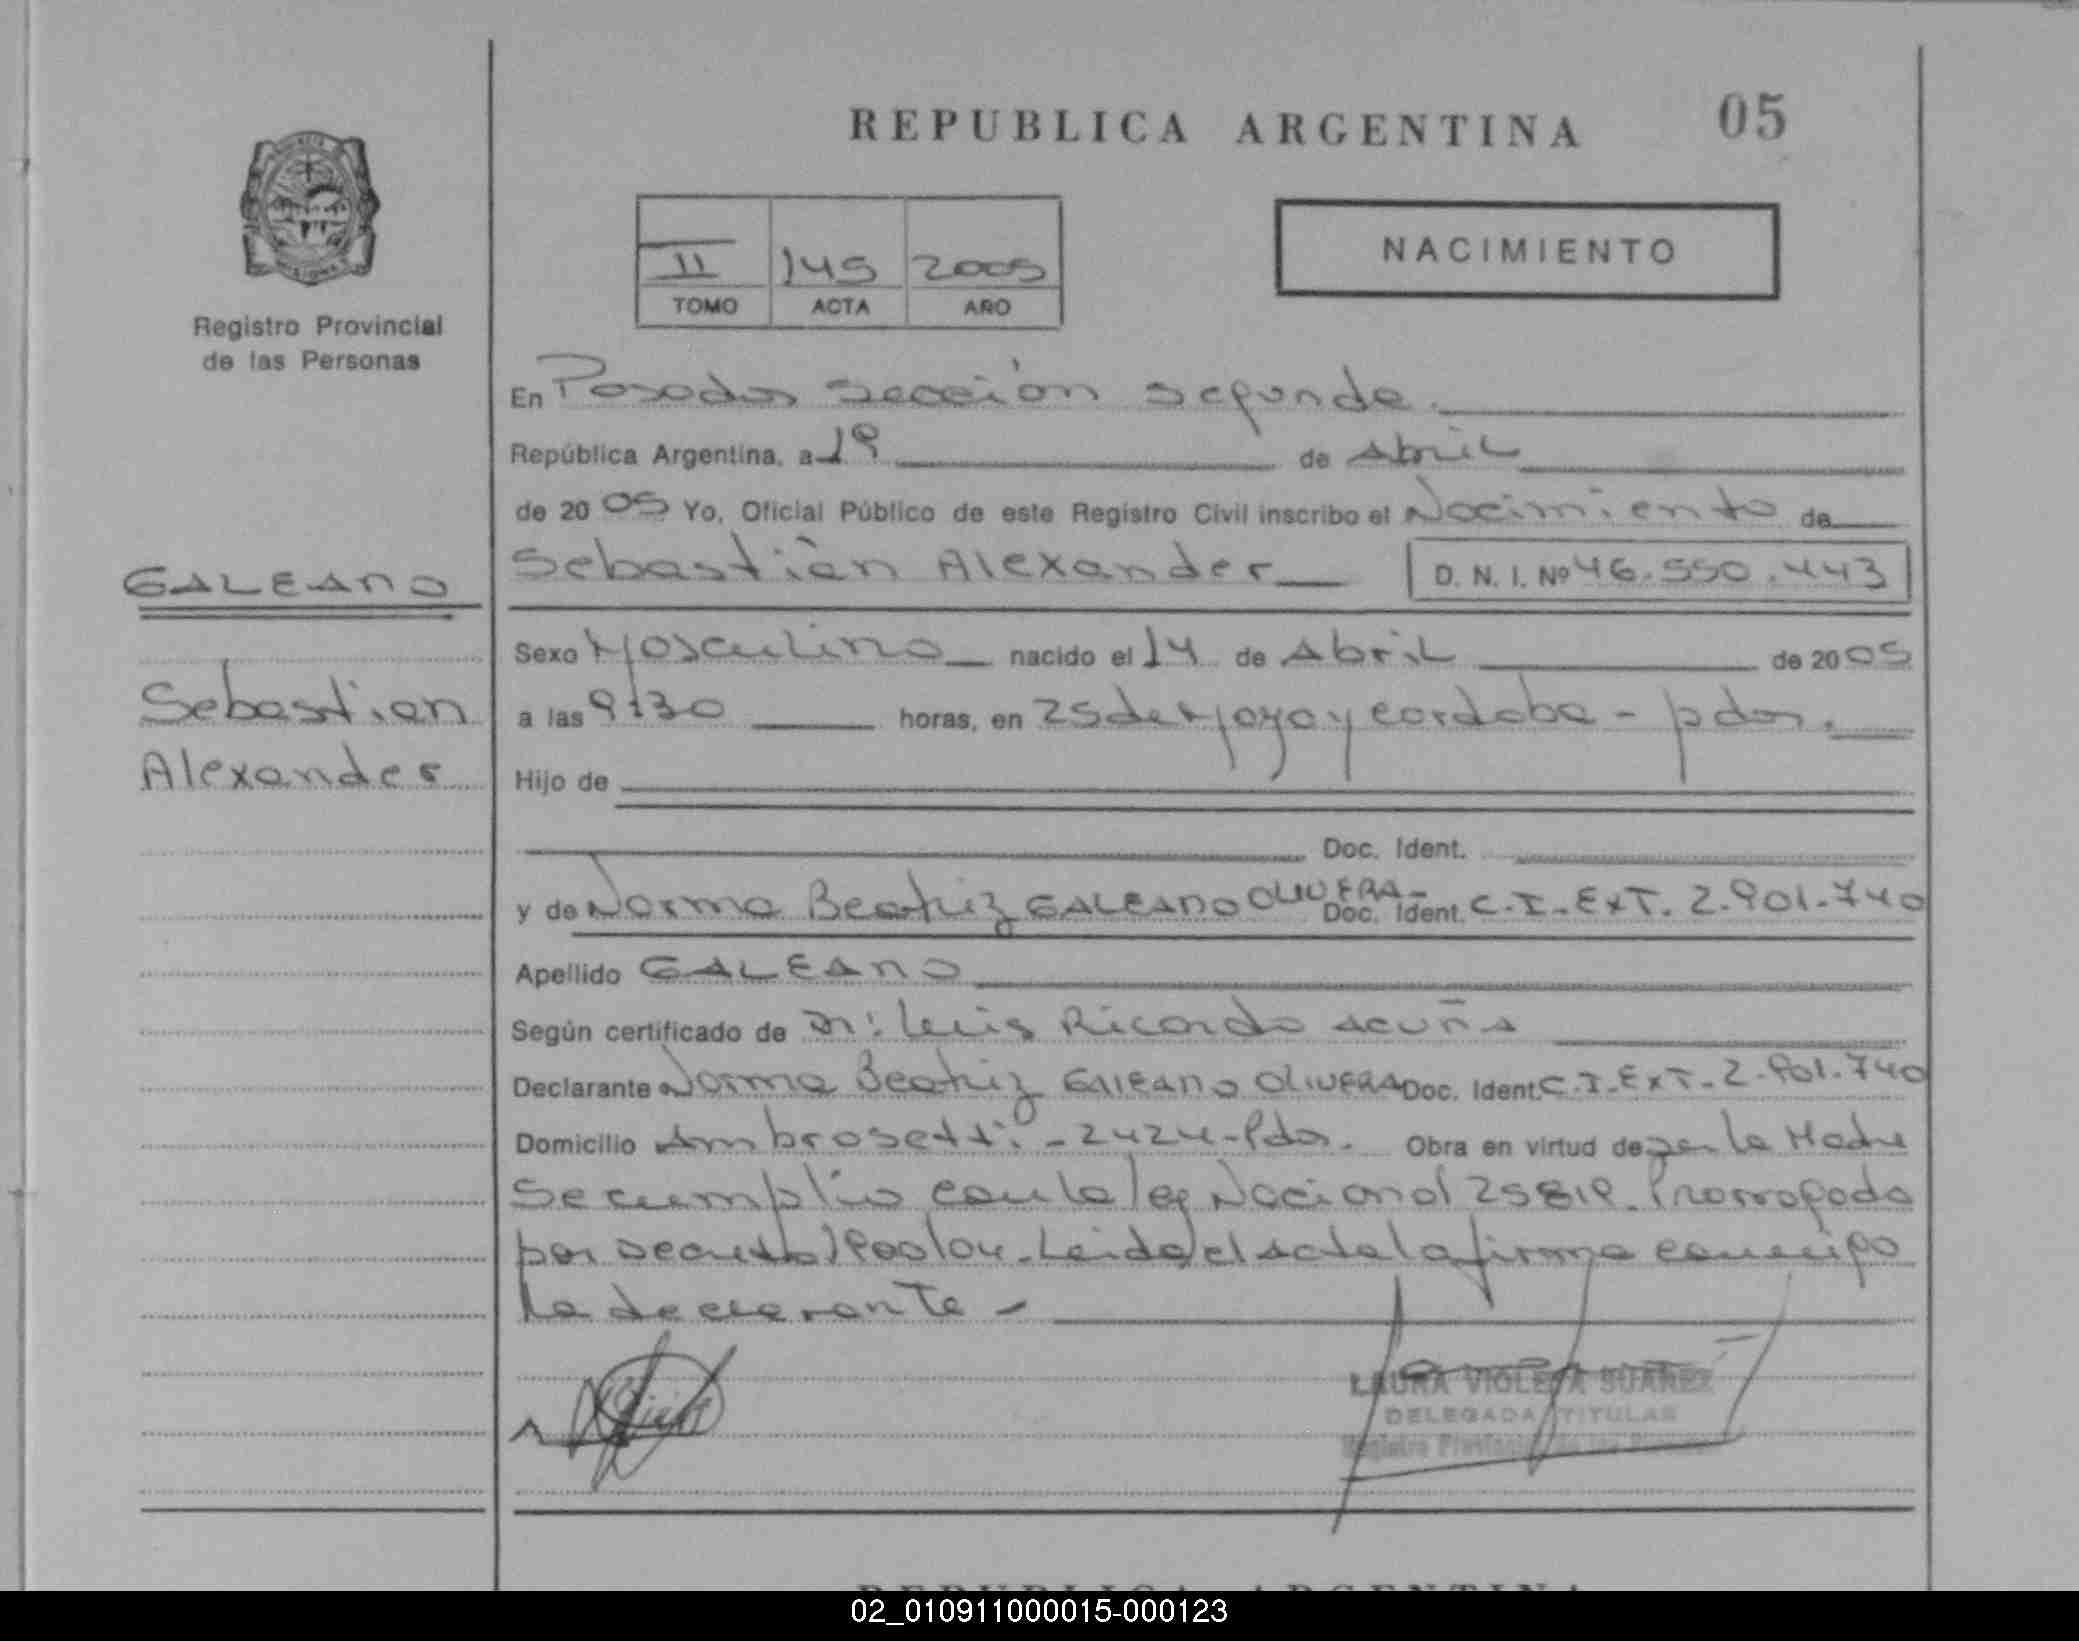 REPUBLICA ARGENTINA 05
II 145 2005
TOMO ACTA AÑO
NACIMIENTO
Registro Provincial
de las Personas
GALEANO
Sebastian
Alexander
En Posadas sección segunda.
República Argentina, a 19 de Abril
de 2005 Yo, Oficial Público de este Registro Civil inscribo el Nacimiento de
Sebastián Alexander D. N. I. Nº 46.550.443
Sexo Masculino nacido el 14 de Abril de 2005
a las 9:30 horas, en 25 de Mayo y cordoba - pdas.
Hijo de
Doc. Ident.
y de Norma Beatriz GALEANO OLIVERA- Doc. Ident. C.I. EXT. 2.901.740
Apellido GALEANO
Según certificado de Dr: Luis Ricardo Acuña
Declarante Norma Beatriz GALEANO OLIVERA Doc. Ident. C.I. EXT. 2.901.740
Domicilio Ambrosetti - 2424 - Pdas. Obra en virtud de ser la Madre
Se cumplio con la ley Nacional 25819. Prorrogada
por decreto 1900/04. Leida el acta la firma conmigo
la declarante -
LAURA VIOLETA SUAREZ
DELEGADA TITULAR
Registro Provincial de las Personas
02_010911000015-000123